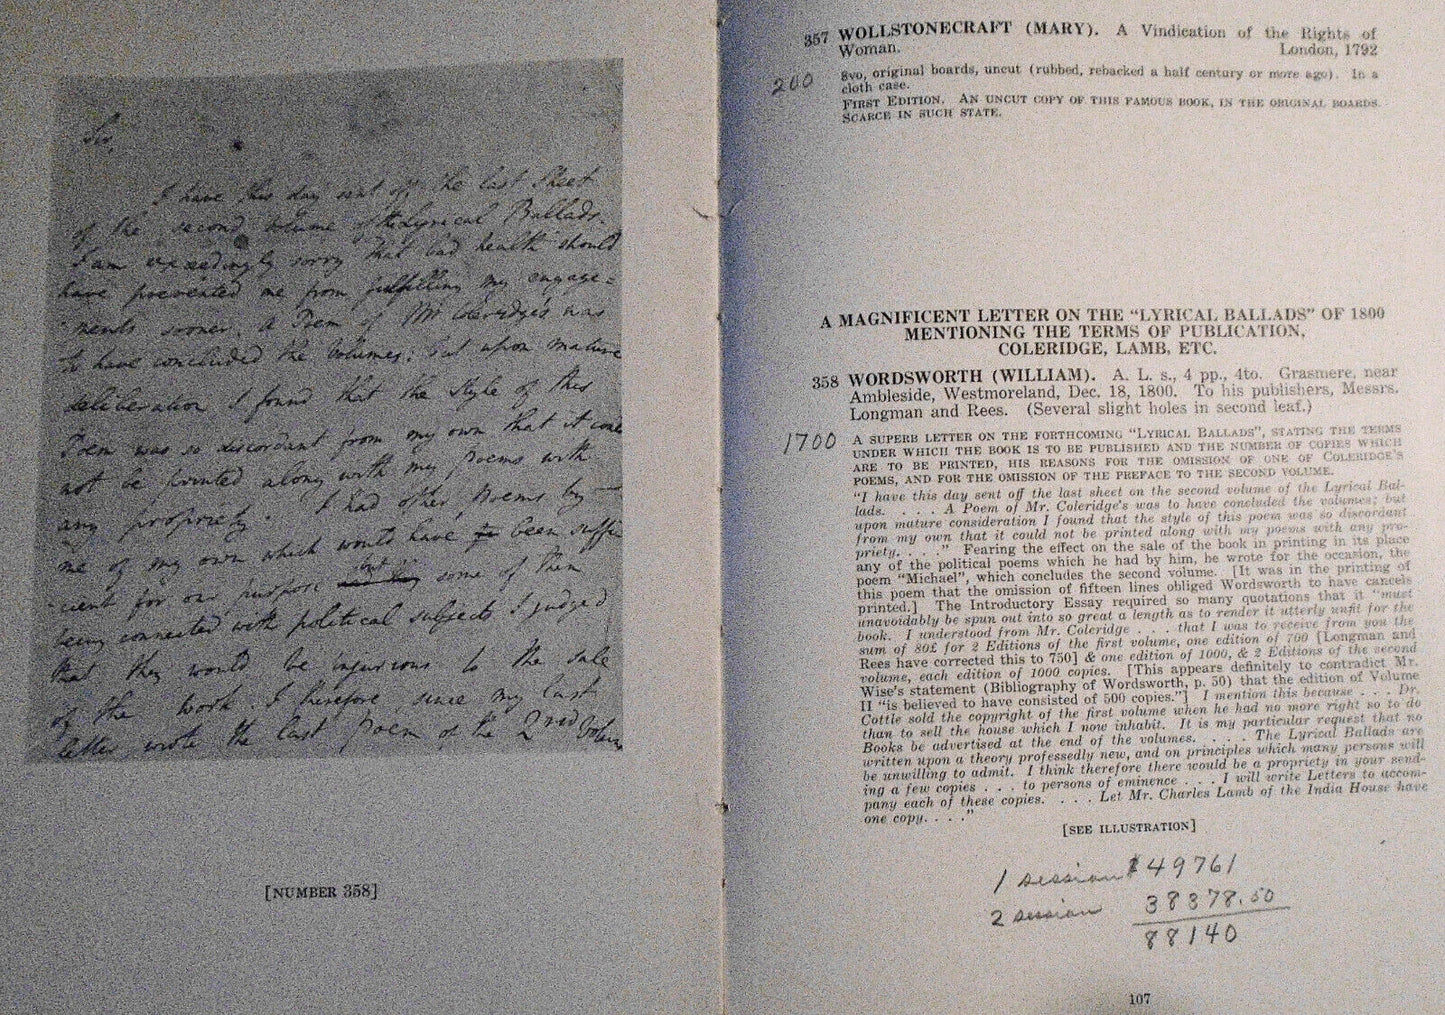 Sir,
I have this day sent off the last Sheet
of the second volume of the Lyrical Ballads.
I am exceedingly sorry that bad health should
have prevented me from fulfilling my engage=
ments sooner. A Poem of Mr Coleridge's was
to have concluded the volumes; but upon mature
deliberation I found that the Style of this
Poem was so discordant from my own that it could
not be printed along with my poems with
any propriety. I had other poems by
me of my own which would have been suffi
cient for our purpose but some of them
being connected with political subjects I judged
that they would be injurious to the sale
of the work. I therefore since my last
letter wrote the last Poem of the 2nd Volume
[NUMBER 358]
357 WOLLSTONECRAFT (MARY). A Vindication of the Rights of
Woman. London, 1792
200 8vo, original boards, uncut (rubbed, rebacked a half century or more ago). In a
cloth case.
FIRST EDITION. AN UNCUT COPY OF THIS FAMOUS BOOK, IN THE ORIGINAL BOARDS.
SCARCE IN SUCH STATE.
A MAGNIFICENT LETTER ON THE "LYRICAL BALLADS" OF 1800
MENTIONING THE TERMS OF PUBLICATION,
COLERIDGE, LAMB, ETC.
358 WORDSWORTH (WILLIAM). A. L. s., 4 pp., 4to. Grasmere, near
Ambleside, Westmoreland, Dec. 18, 1800. To his publishers, Messrs.
Longman and Rees. (Several slight holes in second leaf.)
1700 A SUPERB LETTER ON THE FORTHCOMING "LYRICAL BALLADS", STATING THE TERMS
UNDER WHICH THE BOOK IS TO BE PUBLISHED AND THE NUMBER OF COPIES WHICH
ARE TO BE PRINTED, HIS REASONS FOR THE OMISSION OF ONE OF COLERIDGE'S
POEMS, AND FOR THE OMISSION OF THE PREFACE TO THE SECOND VOLUME.
"I have this day sent off the last sheet on the second volume of the Lyrical Bal-
lads. . . . . A Poem of Mr. Coleridge's was to have concluded the volumes; but
upon mature consideration I found that the style of this poem was so discordant
from my own that it could not be printed along with my poems with any pro-
priety. . . ." Fearing the effect on the sale of the book in printing in its place
any of the political poems which he had by him, he wrote for the occasion, the
poem "Michael", which concludes the second volume. [It was in the printing of
this poem that the omission of fifteen lines obliged Wordsworth to have cancels
printed.] The Introductory Essay required so many quotations that it "must
unavoidably be spun out into so great a length as to render it utterly unfit for the
book. I understood from Mr. Coleridge . . . that I was to receive from you the
sum of 80£ for 2 Editions of the first volume, one edition of 700 [Longman and
Rees have corrected this to 750] & one edition of 1000, & 2 Editions of the second
volume, each edition of 1000 copies. [This appears definitely to contradict Mr.
Wise's statement (Bibliography of Wordsworth, p. 50) that the edition of Volume
II "is believed to have consisted of 500 copies."] I mention this because . . . Dr.
Cottle sold the copyright of the first volume when he had no more right so to do
than to sell the house which I now inhabit. It is my particular request that no
Books be advertised at the end of the volumes. . . . . The Lyrical Ballads are
written upon a theory professedly new, and on principles which many persons will
be unwilling to admit. I think therefore there would be a propriety in your send-
ing a few copies . . . to persons of eminence . . . I will write Letters to accom-
pany each of these copies. . . . . Let Mr. Charles Lamb of the India House have
one copy. . . ."
[SEE ILLUSTRATION]
1 session $49761
2 session 38378.50
88140
107